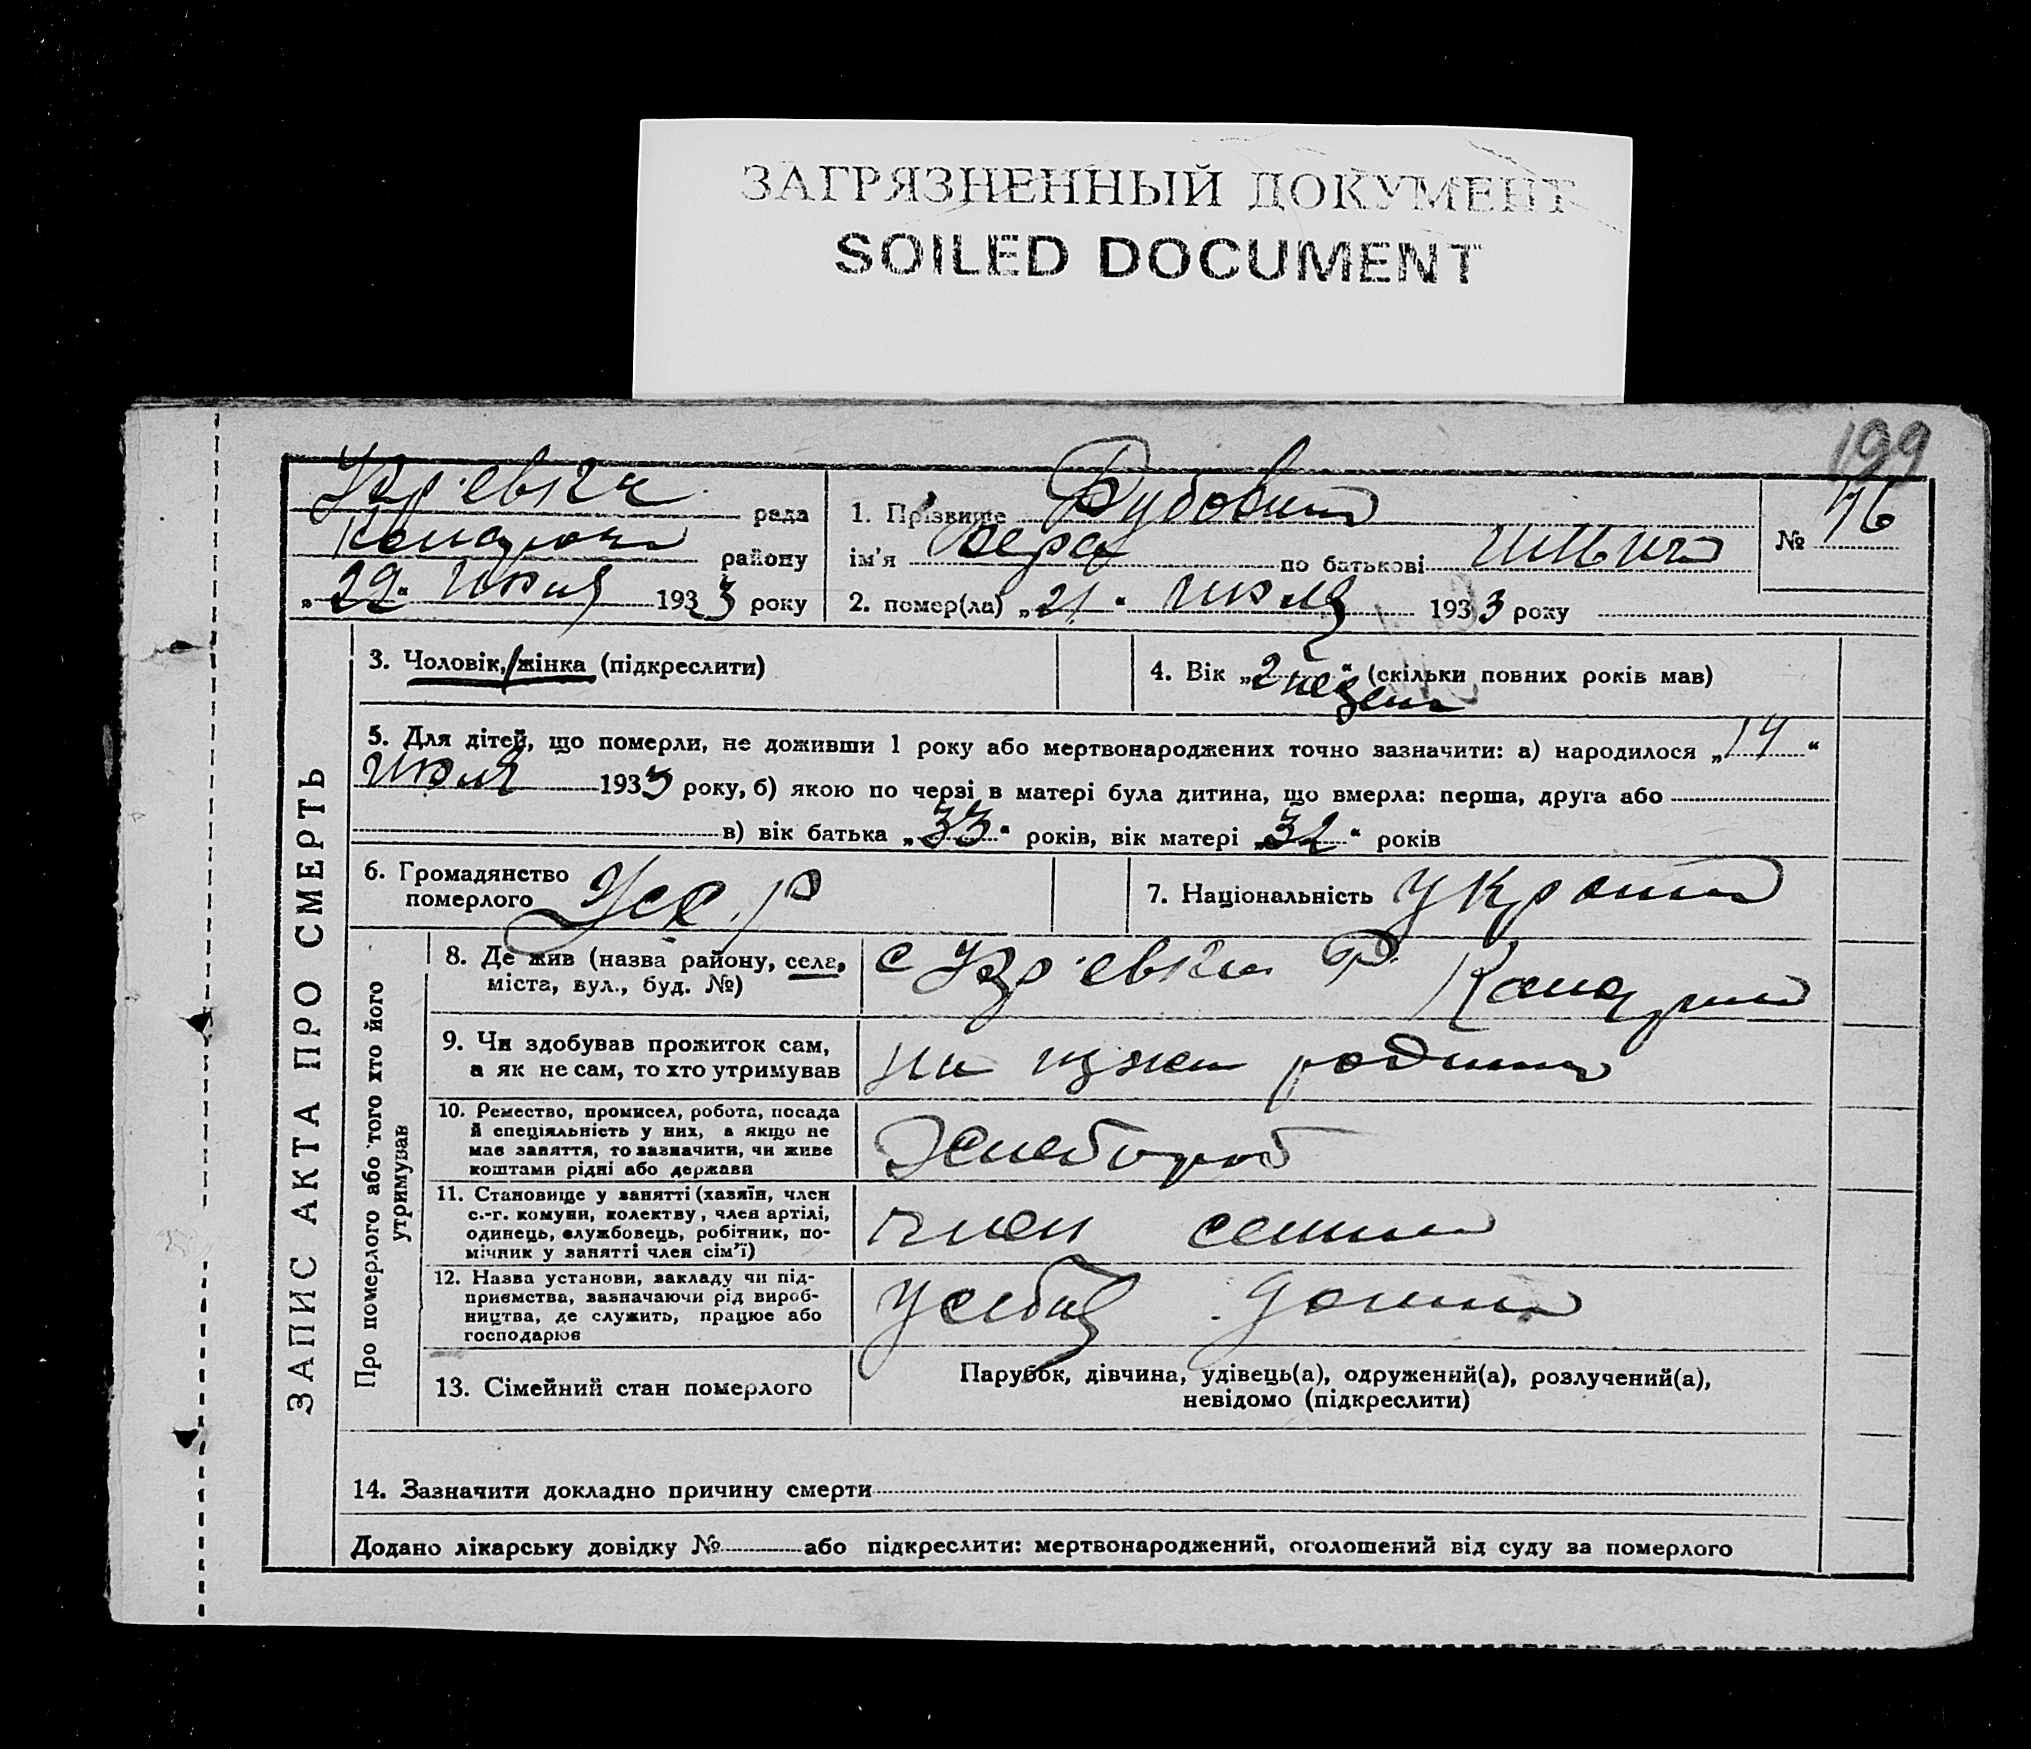 ЗАГРЯЗНЕННЫЙ ДОКУМЕНТ
SOILED DOCUMENT
199
рада
району
"22" Июля 1933 року
1. Прізвище
ім'я Вера по батькові
2. помер(ла) "21" Июля 1933 року
№ 76
ЗАПИС АКТА ПРО СМЕРТЬ
3. Чоловік, жінка (підкреслити)
4. Вік "2 недели" (скільки повних років мав)
5. Для дітей, що померли, не доживши 1 року або мертвонароджених точно зазначити: а) народилося "14"
Июля 1933 року, б) якою по черзі в матері була дитина, що вмерла: перша, друга або
в) вік батька "33" років, вік матері "32" років
6. Громадянство
померлого УССР
7. Національність
Про померлого або того хто його
утримував
8. Де жив (назва району, села,
міста, вул., буд. №)
с Р.
9. Чи здобував прожиток сам,
а як не сам, то хто утримував
10. Ремество, промисел, робота, посада
й спеціяльність у них, а якщо не
має заняття, то зазначити, чи живе
коштами рідні або держави
11. Становище у занятті (хазяїн, член
с.-г. комуни, колектву, член артілі,
одинець, службовець, робітник, по-
мічник у занятті член сім'ї)
член семьи
12. Назва установи, закладу чи під-
приємства, зазначаючи рід вироб-
ництва, де служить, працює або
господарює
у себя дома
13. Сімейний стан померлого
Парубок, дівчина, удівець(а), одружений(а), розлучений(а),
невідомо (підкреслити)
14. Зазначити докладно причину смерти
Додано лікарську довідку № або підкреслити: мертвонароджений, оголошений від суду за померлого